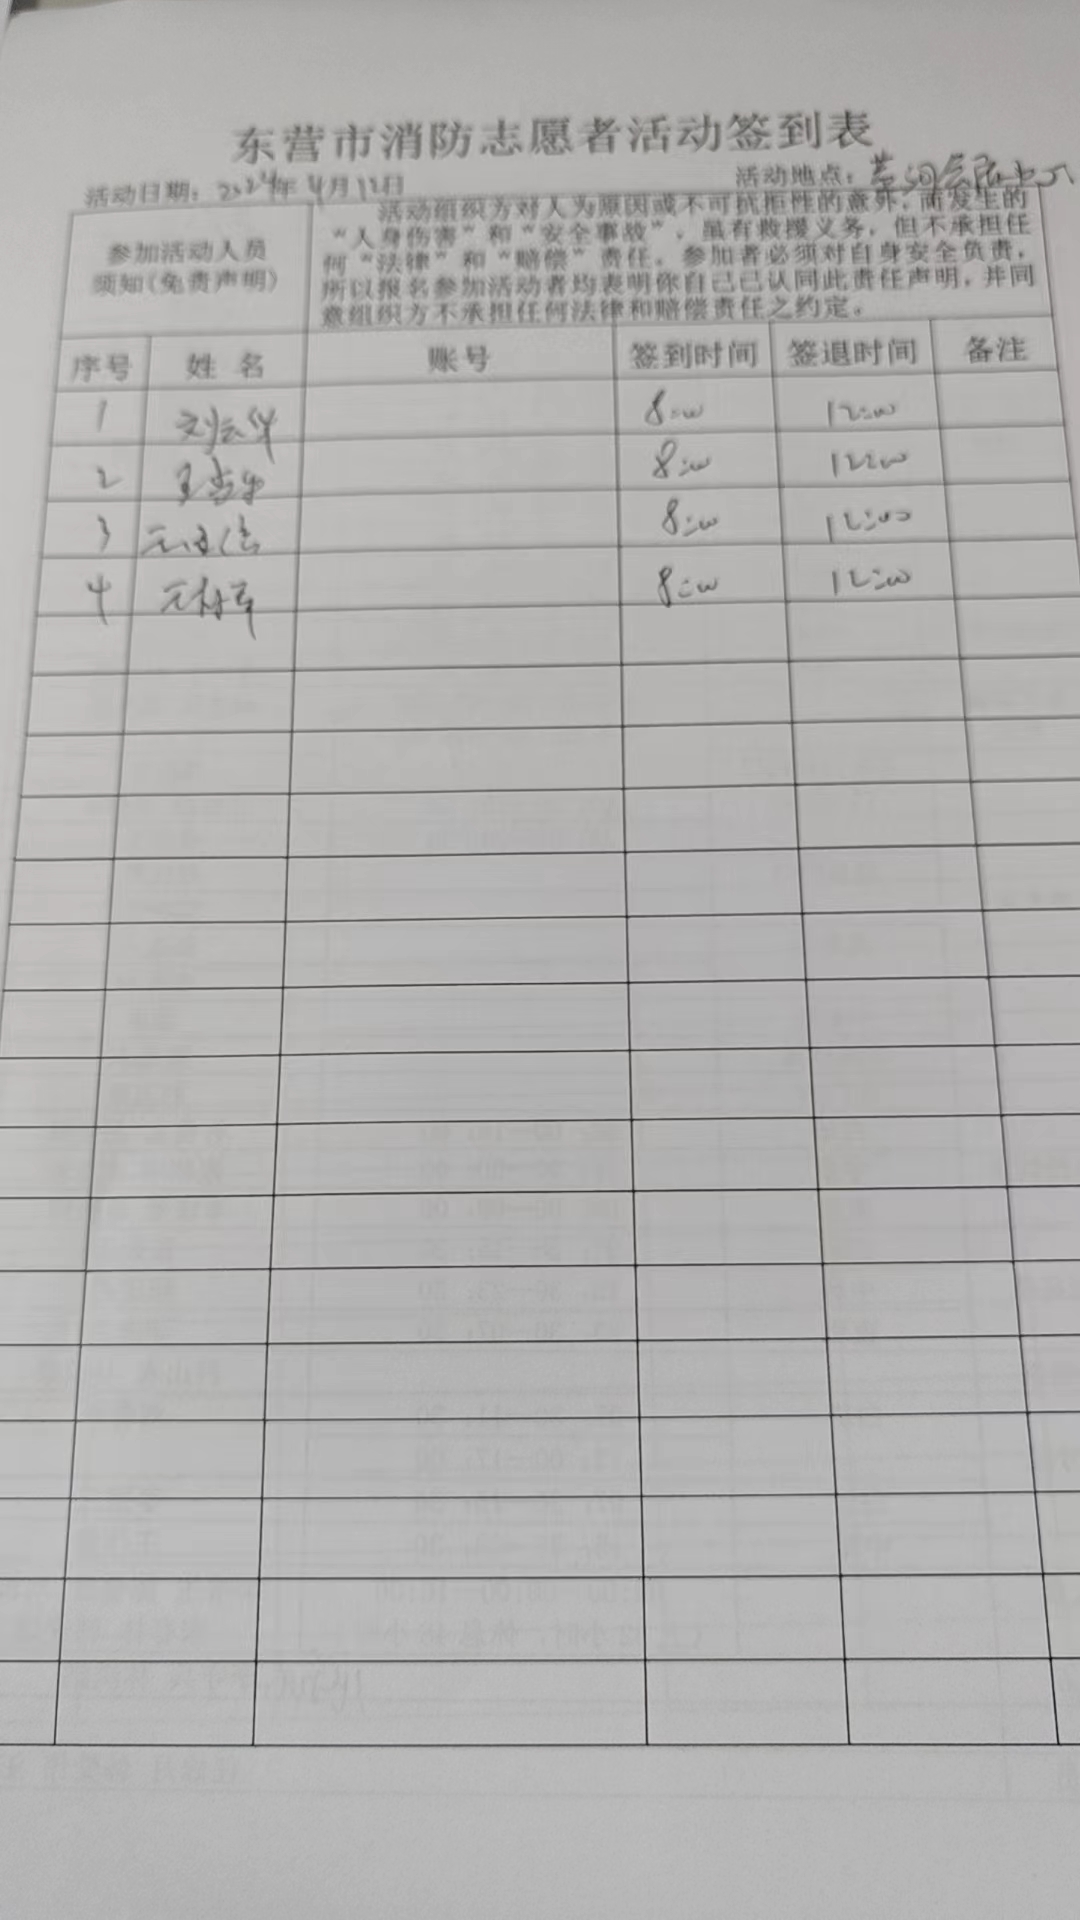 东营市消防志愿者活动签到表
活动日期：2024年4月12日 活动地点：黄河
参加活动人员
须知（免责声明）
活动组织方对人为原因或不可抗拒性的意外，而发生的
“人身伤害”和“安全事故”，虽有救援义务，但不承担任
何“法律”和“赔偿”责任，参加者必须对自身安全负责，
所以报名参加活动者均表明你自己已认同此责任声明，并同
意组织方不承担任何法律和赔偿责任之约定。
序号 姓 名 账号 签到时间 签退时间 备注
1 8:00 12:00
2 8:00 12:00
3 8:00 12:00
4 8:00 12:00